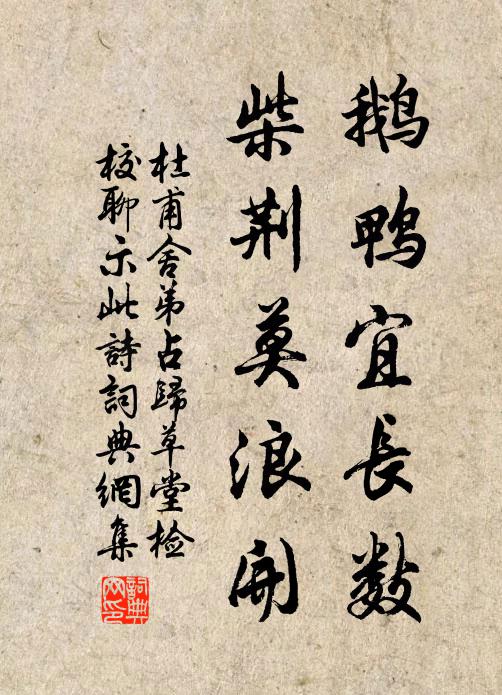 鹅鸭宜長數
柴荆莫浪開
杜甫舍弟占歸草堂檢
校聊示此詩詞典網集